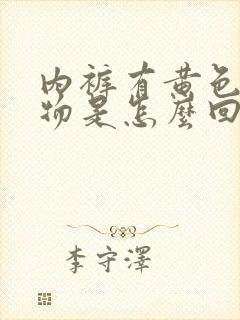 内裤有黄色
物是怎麼回
李守澤